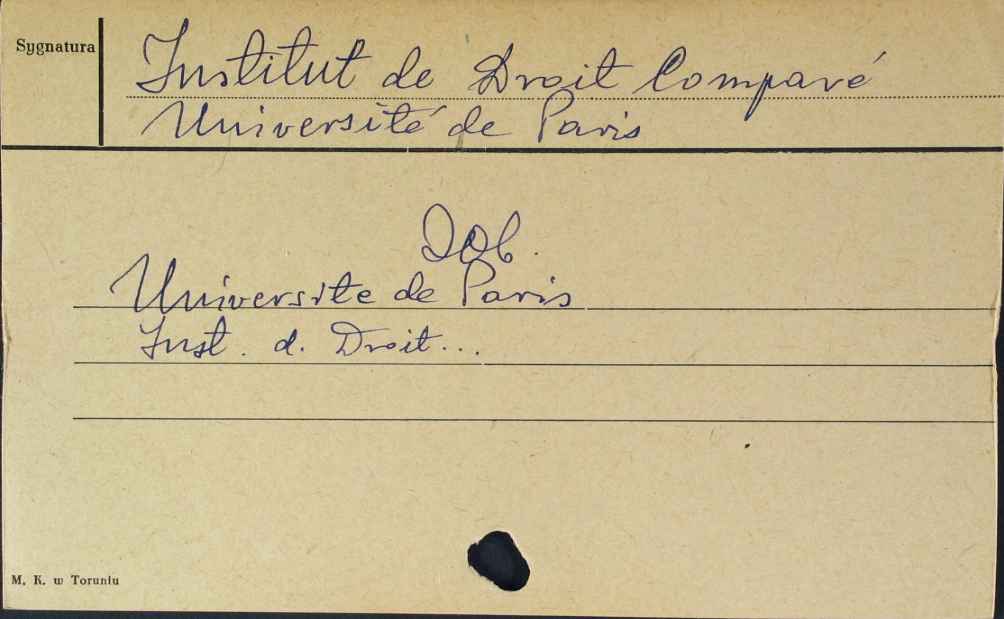 Sygnatura
Institut de Droit Comparé
Université de Paris
Universite de Paris
Inst. d. Droit...
M. K. w Toruniu